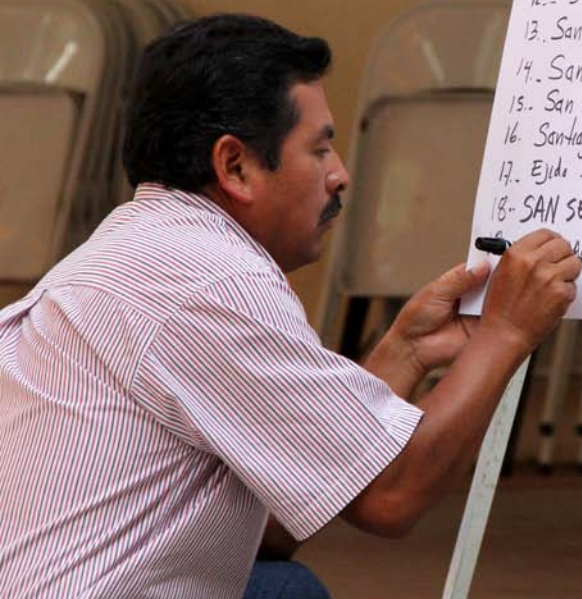 13.. San
14.. San
15.- San
16. Santia
17.. Ejido
18.- SAN SE